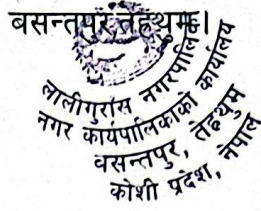 बसन्तपुर,तेह्रथुम।
लालीगुराँस नगरपालिका
नगर कार्यपालिकाको कार्यालय
वसन्तपुर, तेह्रथुम
कोशी प्रदेश, नेपाल